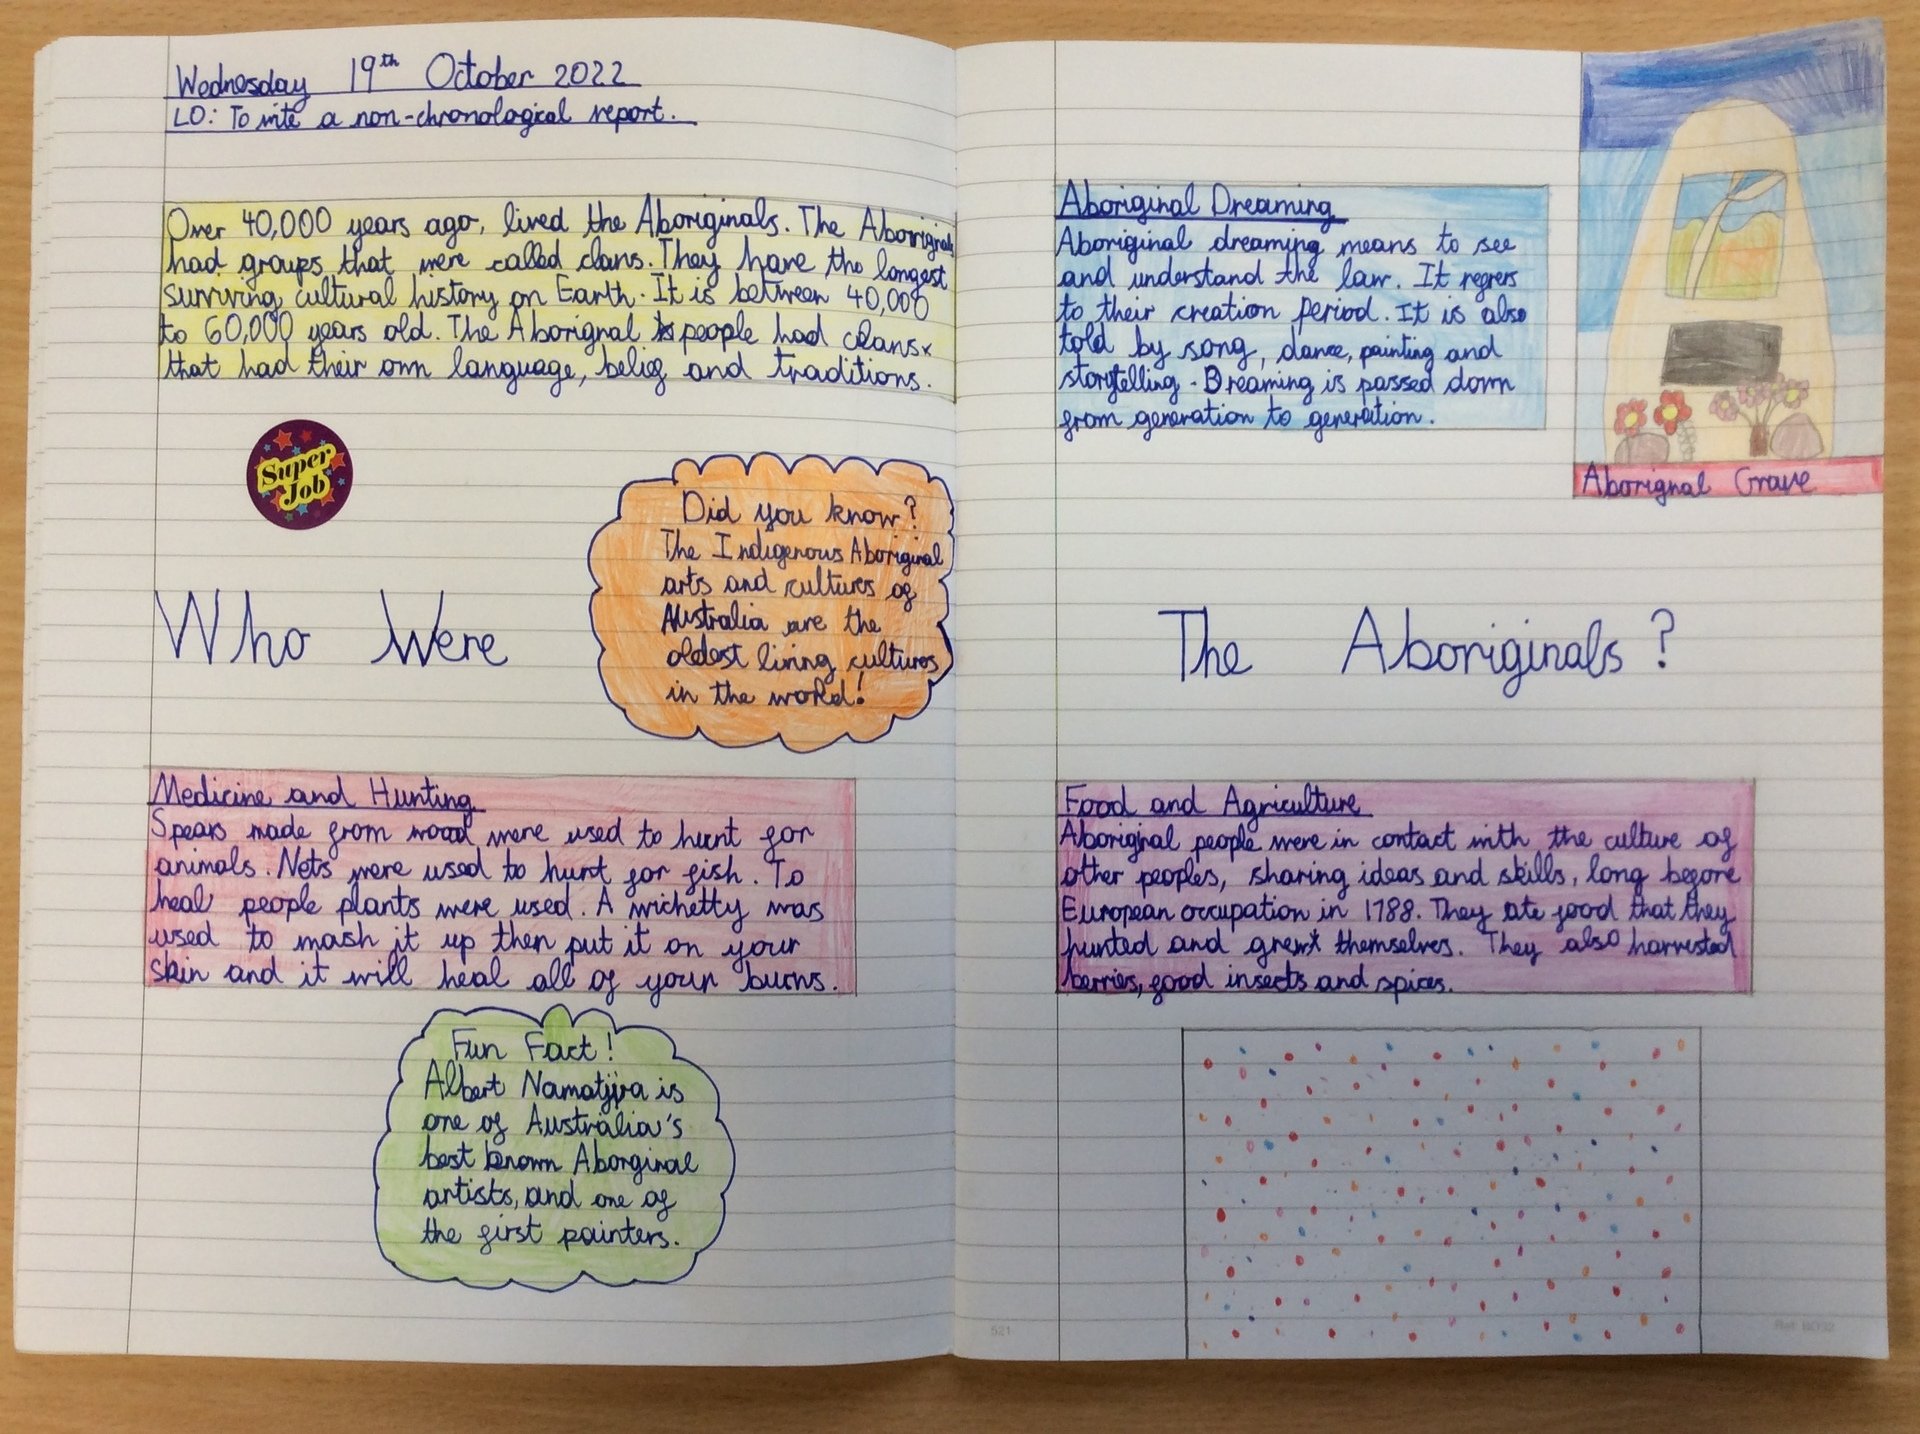 Wednesday 19th October 2022
LO: To write a non-chronological report.
Over 40,000 years ago, lived the Aboriginals. The Aboriginals
had groups that were called clans. They have the longest
surviving cultural history on Earth. It is between 40,000
to 60,000 years old. The Aborignal people had clans
that had their own language, belief and traditions.
Super
Job
Did you know?
The Indigenous Aboriginal
arts and cultures of
Australia are the
oldest living cultures
in the world!
Who Were
Medicine and Hunting
Spears made from wood were used to hunt for
animals. Nets were used to hunt for fish. To
heal people plants were used. A wichetty was
used to mash it up then put it on your
skin and it will heal all of your burns.
Fun Fact!
Albert Namatjira is
one of Australia's
best known Aborginal
artists, and one of
the first painters.
Aboriginal Dreaming
Aboriginal dreaming means to see
and understand the law. It refers
to their creation period. It is also
told by song, dance, painting and
storytelling. Dreaming is passed down
from generation to generation.
Aborignal Grave
The Aboriginals?
Food and Agriculture
Aboriginal people were in contact with the culture of
other peoples, sharing ideas and skills, long before
European occupation in 1788. They ate food that they
hunted and grew themselves. They also harvested
berries, food insects and spices.
521